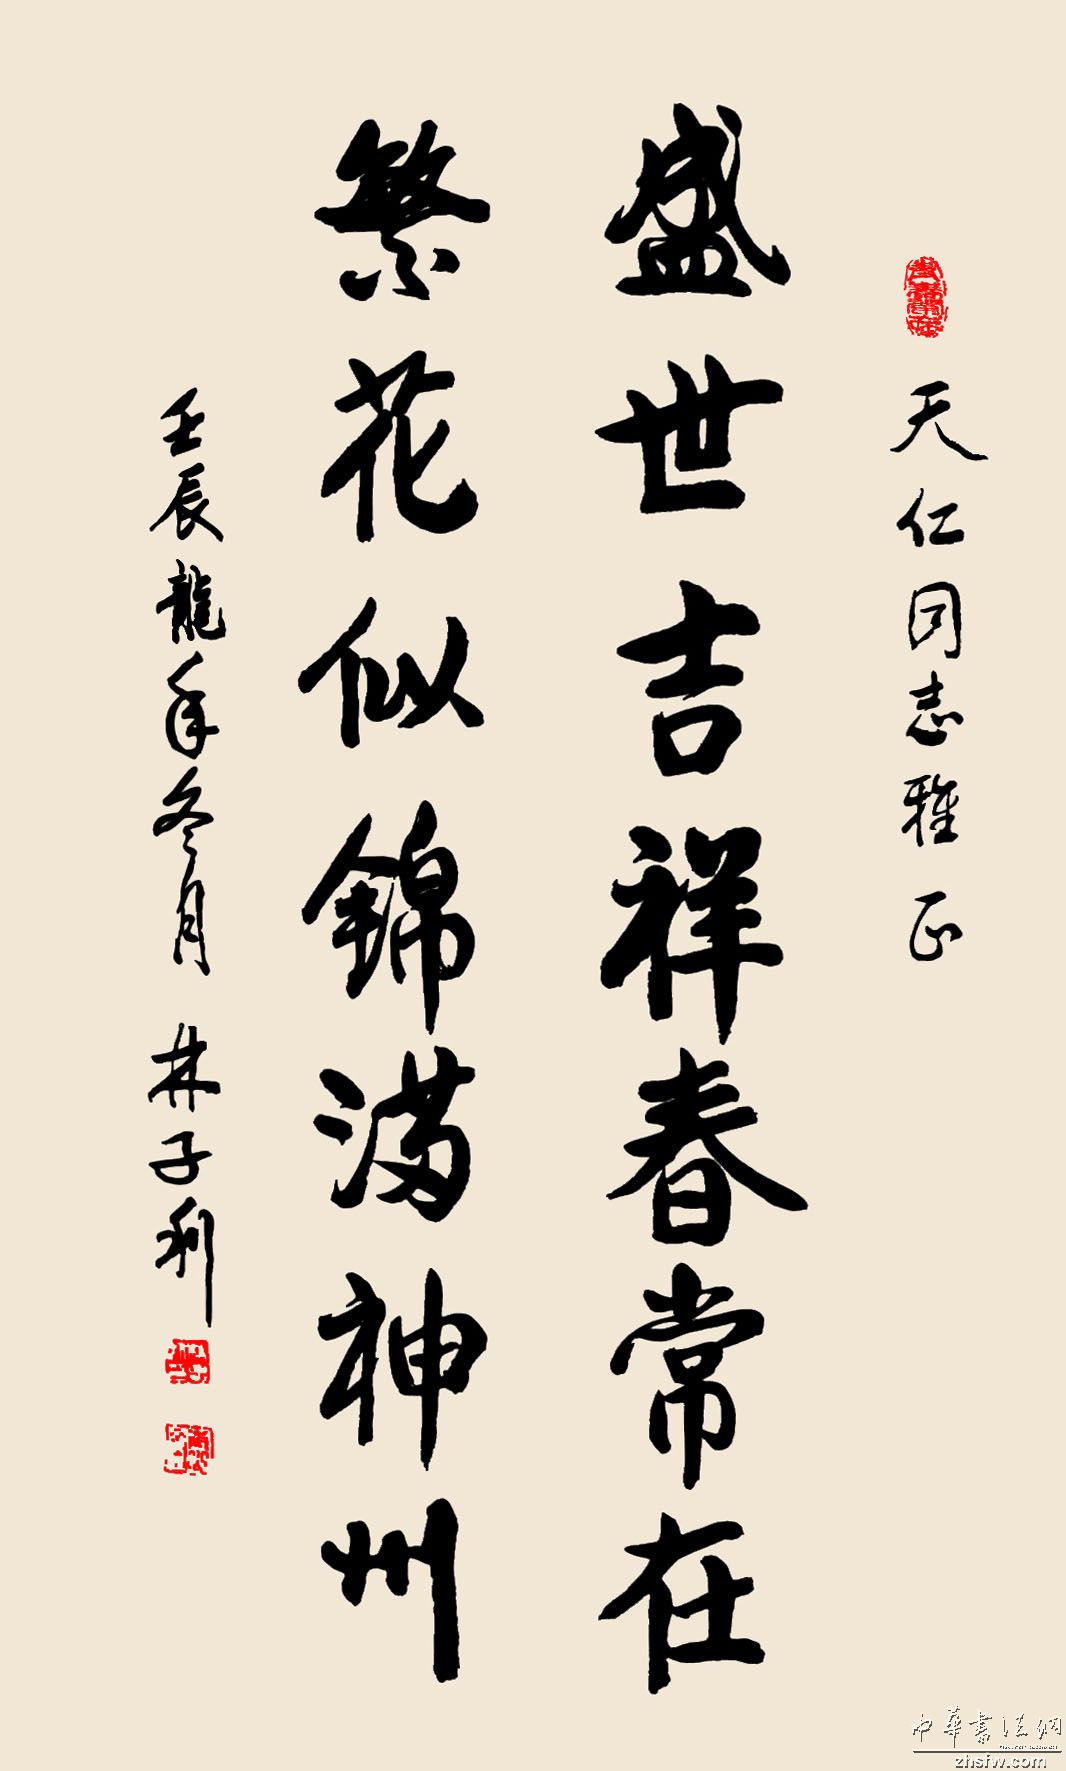 天仁同志雅正
盛世吉祥春常在
繁花似錦満神州
壬辰龍年冬月 林子利
中华书法网
zhsfw.com